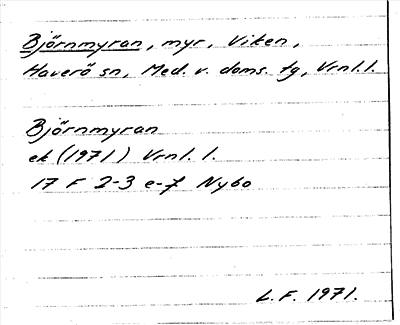 Björnmyran, myr, Viken,
Haverö sn, Med. v. doms. tg, Vrnl. l.
Björnmyran
ek (1971) Vrnl. l.
17 F 2-3 e-f Nybo
L.F. 1971.